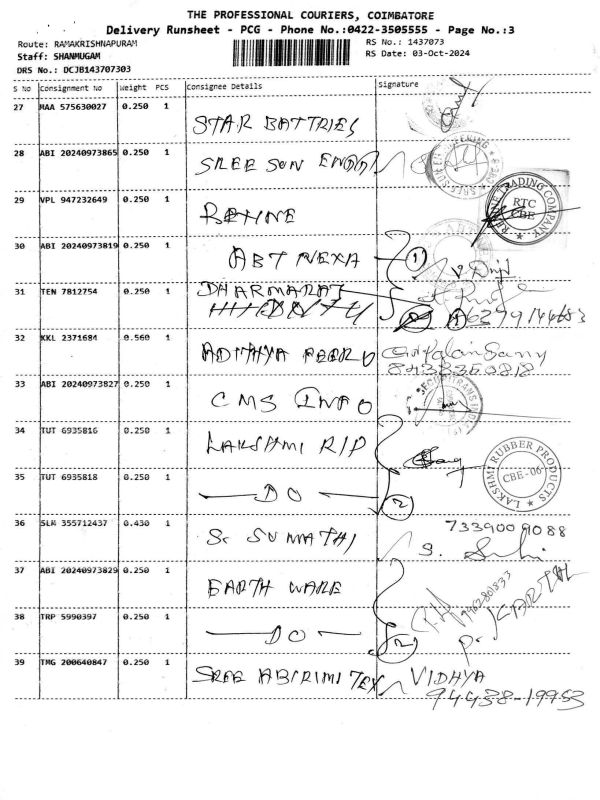 THE PROFESSIONAL COURIERS, COIMBATORE
Delivery Runsheet - PCG - Phone No.:0422-3505555 - Page No.:3
Route: RAMAKRISHNAPURAM
RS No.: 1437073
Staff: SHANMUGAM
RS Date: 03-Oct-2024
DRS No.: DCJB143707303
S No Consignment No Weight PCS Consignee Details Signature
27 MAA 575630027 0.250 1 STAR BATTRIES
28 ABI 20240973865 0.250 1 SREE SUN ENGG
29 VPL 947232649 0.250 1 RETINE
RETINE TRADING COMPANY
RTC
CBE
30 ABI 20240973819 0.250 1 ABT NEXA 1
31 TEN 7812754 0.250 1 DHARMARAJ
32 KKL 2371684 0.560 1 ADITHYA
33 ABI 20240973827 0.250 1 CMS INFO
34 TUT 6935816 0.250 1 LAKSHMI RIP
LAKSHMI RUBBER PRODUCTS
CBE-06
35 TUT 6935818 0.250 1 DO 2
36 SLM 355712437 0.430 1 S. SUMATHI 7339009088
37 ABI 20240973829 0.250 1 EARTH WARE
38 TRP 5990397 0.250 1 DO 2
39 TMG 200640847 0.250 1 SREE ABIRIMI TEX VIDHYA
94438-19953